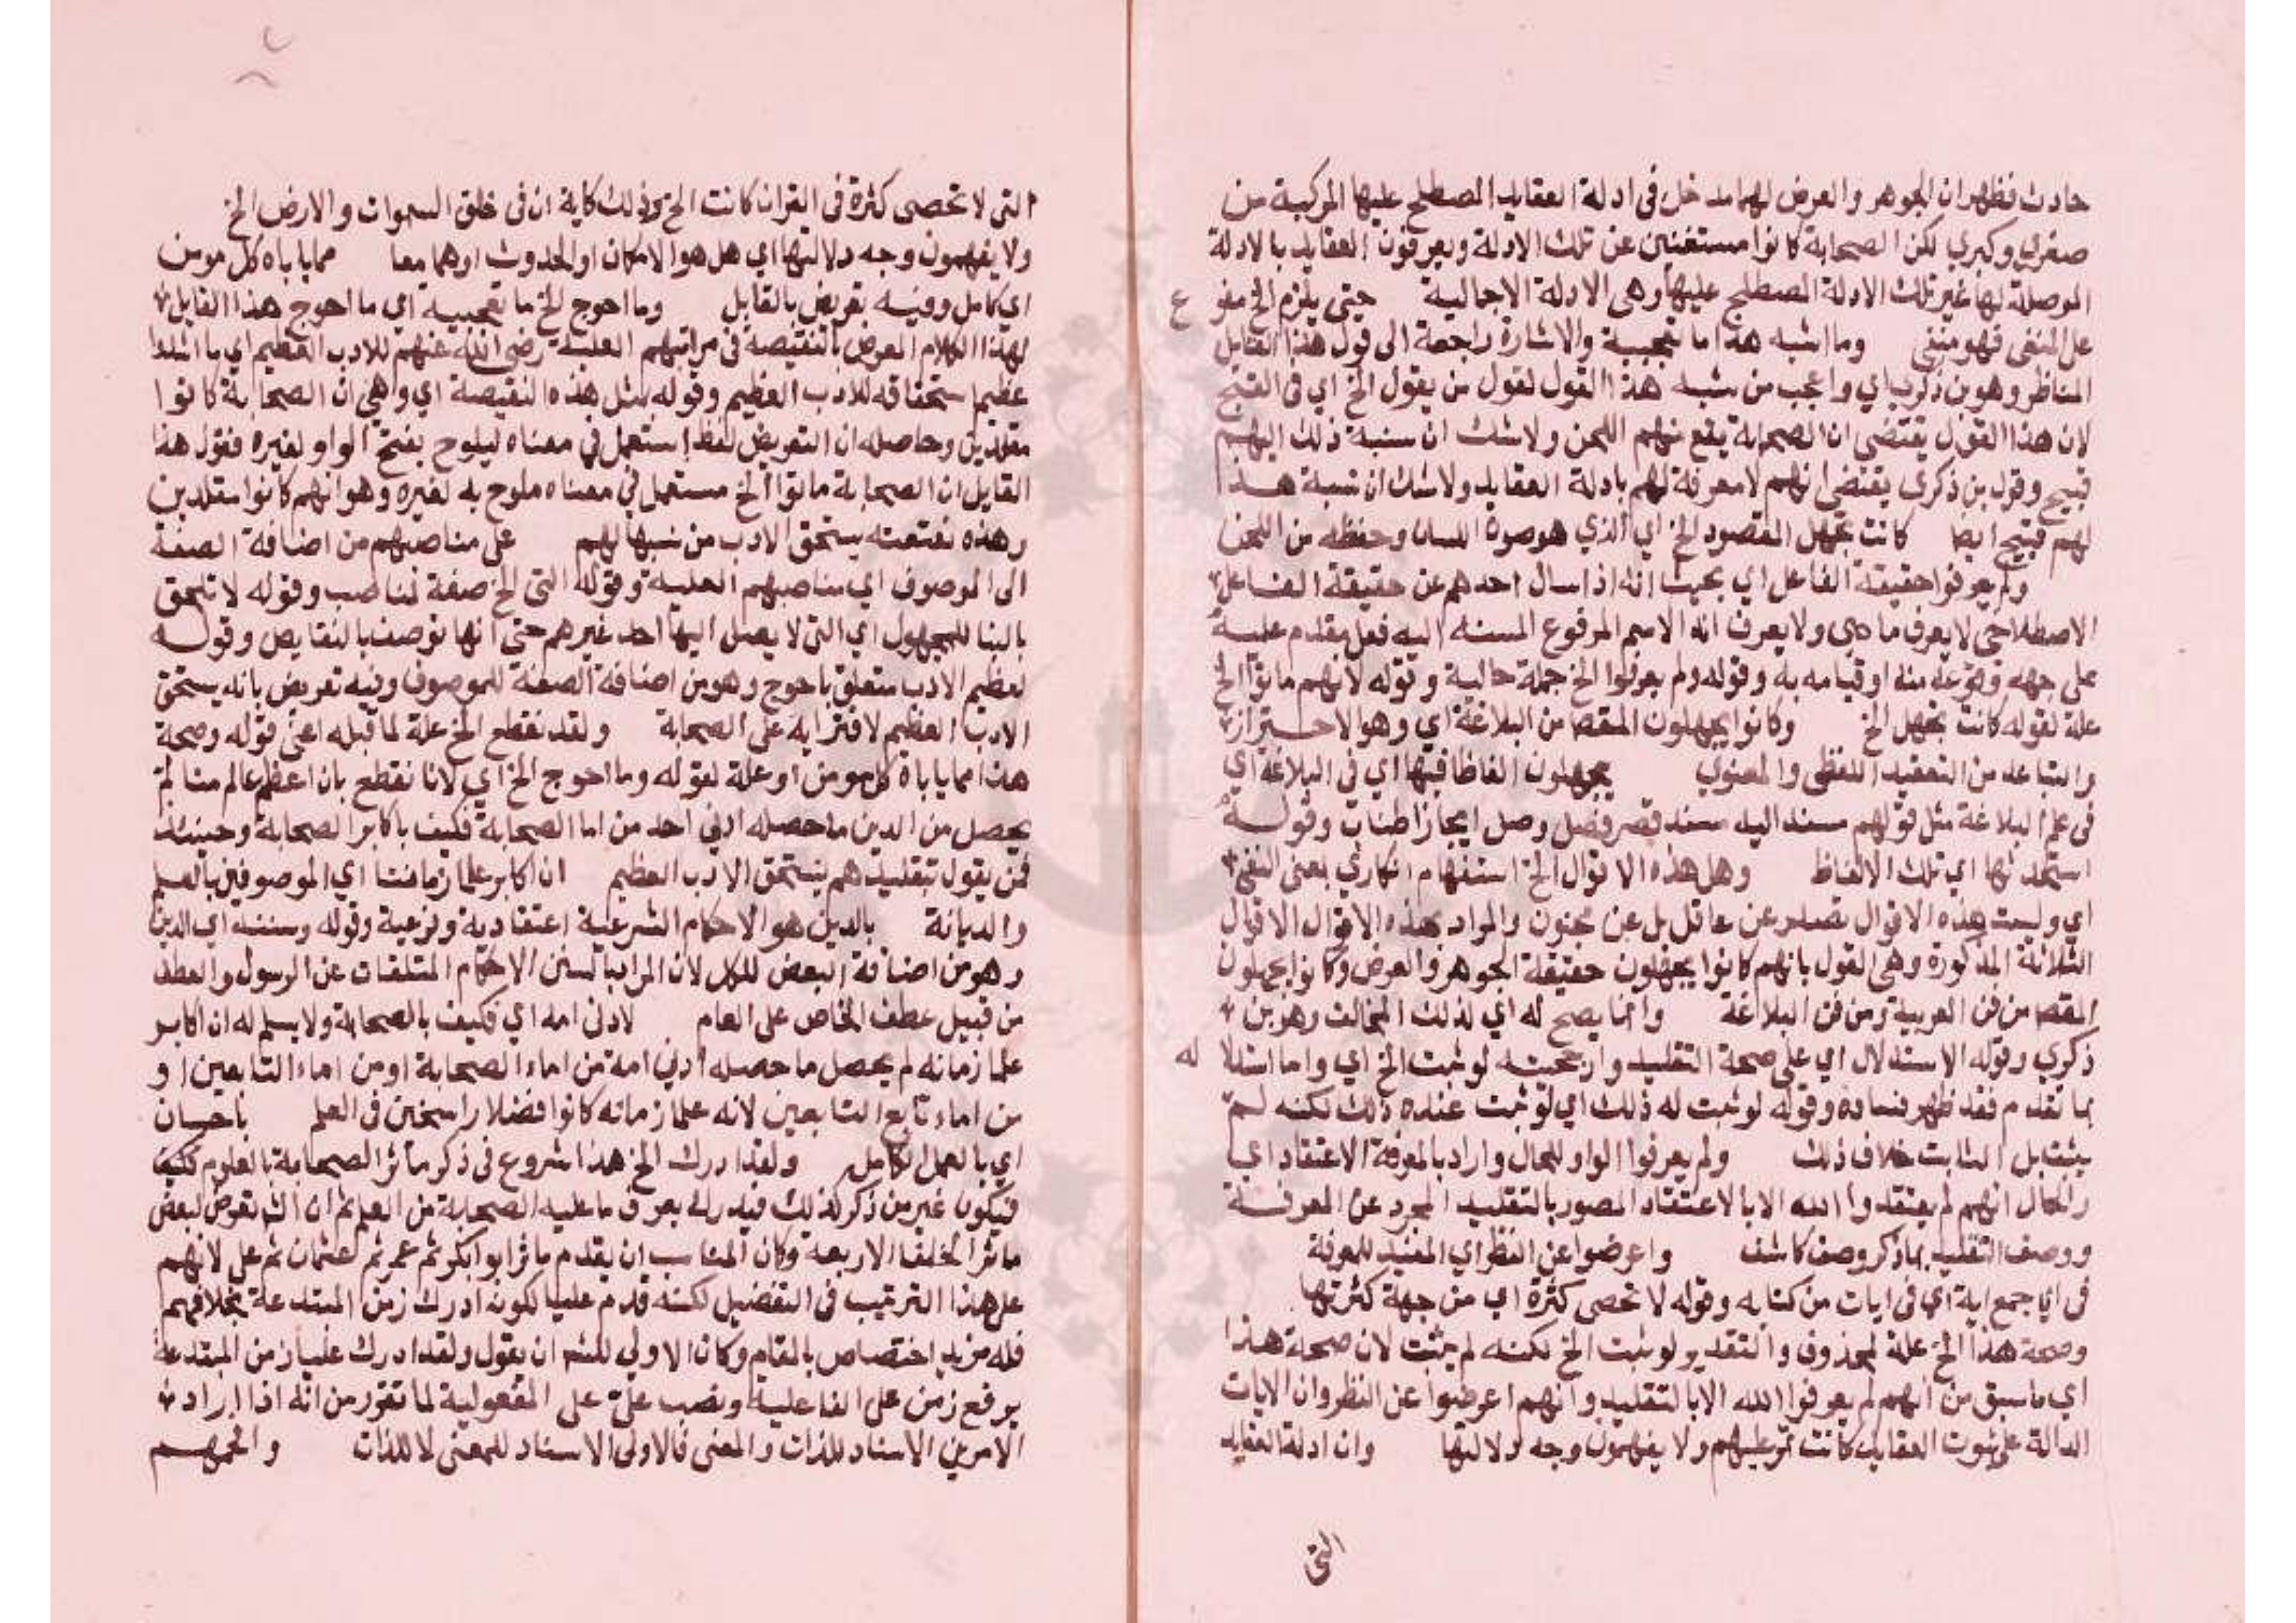 حادث فظهر ان الجوهر والعرض لهما مدخل فى ادلة العقايد المصطلح عليها المركبة من
صغري وكبري لكن الصحابة كانوا مستغنين عن تلك الادلة ويعرفون العقايد بالادلة
الموصلة لها غير تلك الادلة المصطلح عليها وهى الادلة الاجمالية حيتى يلزم الخ مفرع
على المنفى فهو منفى وما اشبه هذا ما تعجبية والاشارة راجعة الى قول هذا القايل
المناظر وهو بن ذكري اي واعجب من شبه هذا القول لقول من يقول الخ اي فى القبح
لان هذا القول يقتضى ان الصحابة يقع منهم اللحن ولا شك ان نسبة ذلك اليهم
قبيح وقول بن ذكرى يقتضى انهم لا معرفة لهم بادلة العقايد ولا شك ان نسبة هذا
لهم قبيح ايضا كانت تجهل المقصود الخ اي الذي هو صون اللسان وحفظه من اللحن
ولم يعرفوا حقيقة الفاعل اي بحيث انه اذا سال احدهم عن حقيقة الفاعل
الاصطلاحى لا يعرف ما هى ولا يعرف انه الاسم المرفوع المسند اليه فعل مقدم عليه
على جهه وقوعه منه او قيامه به وقوله ولم يعرفوا الخ جملة حالية وقوله لانهم ماتوا الخ
علة لقوله كانت تجهل الخ وكانوا يجهلون المقصد من البلاغة اي وهو الاحتراز
والتباعد من التعقيد اللفظى والمعنوي يجهلون الفاظا فيها اي فى البلاغة اي
فى علم البلاغة مثل قولهم مسند اليه مسند قصر فصل وصل ايجاز اطناب وقوله
استحدثها اي تلك الالفاظ وهل هذه الاقوال الخ استفهام انكاري بمعنى النفى
اي وليست هذه الاقوال تصدر عن عاقل بل عن مجنون والمراد بهذه الاقوال الاقوال
الثلاثة المذكورة وهى القول بانهم كانوا يجهلون حقيقة الجوهر والعرض وكانوا يجهلون
المقصد من فن العربية ومن فن البلاغة وانما يصح له اي لذلك المخالف وهو بن
ذكري وقوله الاستدلال اي على صحة التقليد وارجحيته لو ثبت الخ اي واما استدلاله
بما تقدم فقد ظهر فساده وقوله لو ثبت له ذلك اي لو ثبت عنده ذلك لكنه لم
يثبت بل الثابت خلاف ذلك ولم يعرفوا الواو للحال واراد بالمعرفة الاعتقاد اي
والحال انهم لم يعتقدوا الله الا بالاعتقاد المصور بالتقليد المجرد عن المعرفة
ووصف التقليد بما ذكر وصف كاشف واعرضوا عن النظر اي المفيد للمعرفة
فى اي جمع اية اي فى ايات من كتابه وقوله لا تحصى كثرة اي من جهة كثرتها
وصحة هذا الخ علة لمحذوف والتقدير لو ثبت الخ لكنه لم يثبت لان صحة هذا
اي ما سبق من انهم لم يعرفوا الله الا بالتقليد وانهم اعرضوا عن النظر وان الايات
الدالة على ثبوت العقايد كانت تمر عليهم ولا يفهمون وجه دلالتها وان ادلة العقايد
التى
التى لا تحصى كثرة فى القران كانت الخ وذلك كاية ان فى خلق السموات والارض الخ
ولا يفهمون وجه دلالتها اي هل هو الامكان او الحدوث او هما معا مما ياباه كل مومن
اي كامل وفيه تعريض بالقايل وما احوج الخ ما تعجبية اي ما احوج هذا القايل
لهذا الكلام المعرض بالنقيصة فى مراتبهم العلية رضى الله عنهم للادب العظيم اي ما اشد
عظيم استحقاقه للادب العظيم وقوله بمثل هذه النقيصة اي وهي ان الصحابة كانوا
مقلدين وحاصله ان التعريض لفظ استعمل في معناه ليلوح بفتح الواو لغيره فقول هذا
القايل ان الصحابة ماتوا الخ مستعمل في معناه ملوح به لغيره وهو انهم كانوا مقلدين
وهذه نقيصة يستحق الادب من نسبها لهم على مناصبهم من اضافة الصفة
الى الموصوف اي مناصبهم العلية وقوله التى الخ صفة لمناصب وقوله لا تلحق
بالبنا للمجهول اي التى لا يصل اليها احد غيرهم حتى انها توصف بالنقايص وقوله
لعظيم الادب متعلق باحوج وهو من اضافة الصفة للموصوف وفيه تعريض بانه يستحق
الادب العظيم لافترايه على الصحابة ولقد نقطع الخ علة لما قبله اعنى قوله وصحة
هذا مما ياباه كل مومن او علة لقوله وما احوج الخ اي لانا نقطع بان اعظم عالم منا لم
يحصل من الدين ما حصله ادنى احد من اما الصحابة فكيف باكابر الصحابة وحينئذ
فمن يقول بتقليدهم يستحق الادب العظيم ان اكابر علما زماننا اي الموصوفين بالعلم
والديانة بالدين هو الاحكام الشرعية اعتقادية وفرعية وقوله وسننه اي الدين
وهو من اضافة البعض للكل لان المراد بالسنن الاحكام المتلقات عن الرسول والعطف
من قبيل عطف الخاص على العام لادنى امه اي فكيف بالصحابة ولا يسلم له ان اكابر
علما زمانه لم يحصل ما حصله ادني امة من اماء الصحابة او من اماء التابعين او
من اماء تابع التابعين لانه علما زمانه كانوا فضلا راسخين فى العلم باحسان
اي بالعمل الكامل ولقد ادرك الخ هذا شروع فى ذكر مآثر الصحابة بالعلوم كيف
فيكون غير من ذكر كذلك فيه رلي يعرف ما عليه الصحابة من العلم ثم ان الش تعرض لبعض
ماثر الخلفا الاربعة وكان المناسب ان يقدم ماثر ابو ابكر ثم عمر ثم عثمان ثم على لانهم
على هذا الترتيب فى التفضيل لكنه قدم عليا لكونه ادرك زمن المبتدعة بخلافهم
فله مزيد اختصاص بالمقام وكان الاولي للش ان يقول ولقد ادرك عليا زمن المبتدعة
برفع زمن على الفاعلية ونصب علىّ على المفعولية لما تقرر من انه اذا اراد
الامرين الاسناد للذات والمعنى فالاولى الاسناد للمعنى لا للذات والجمهم